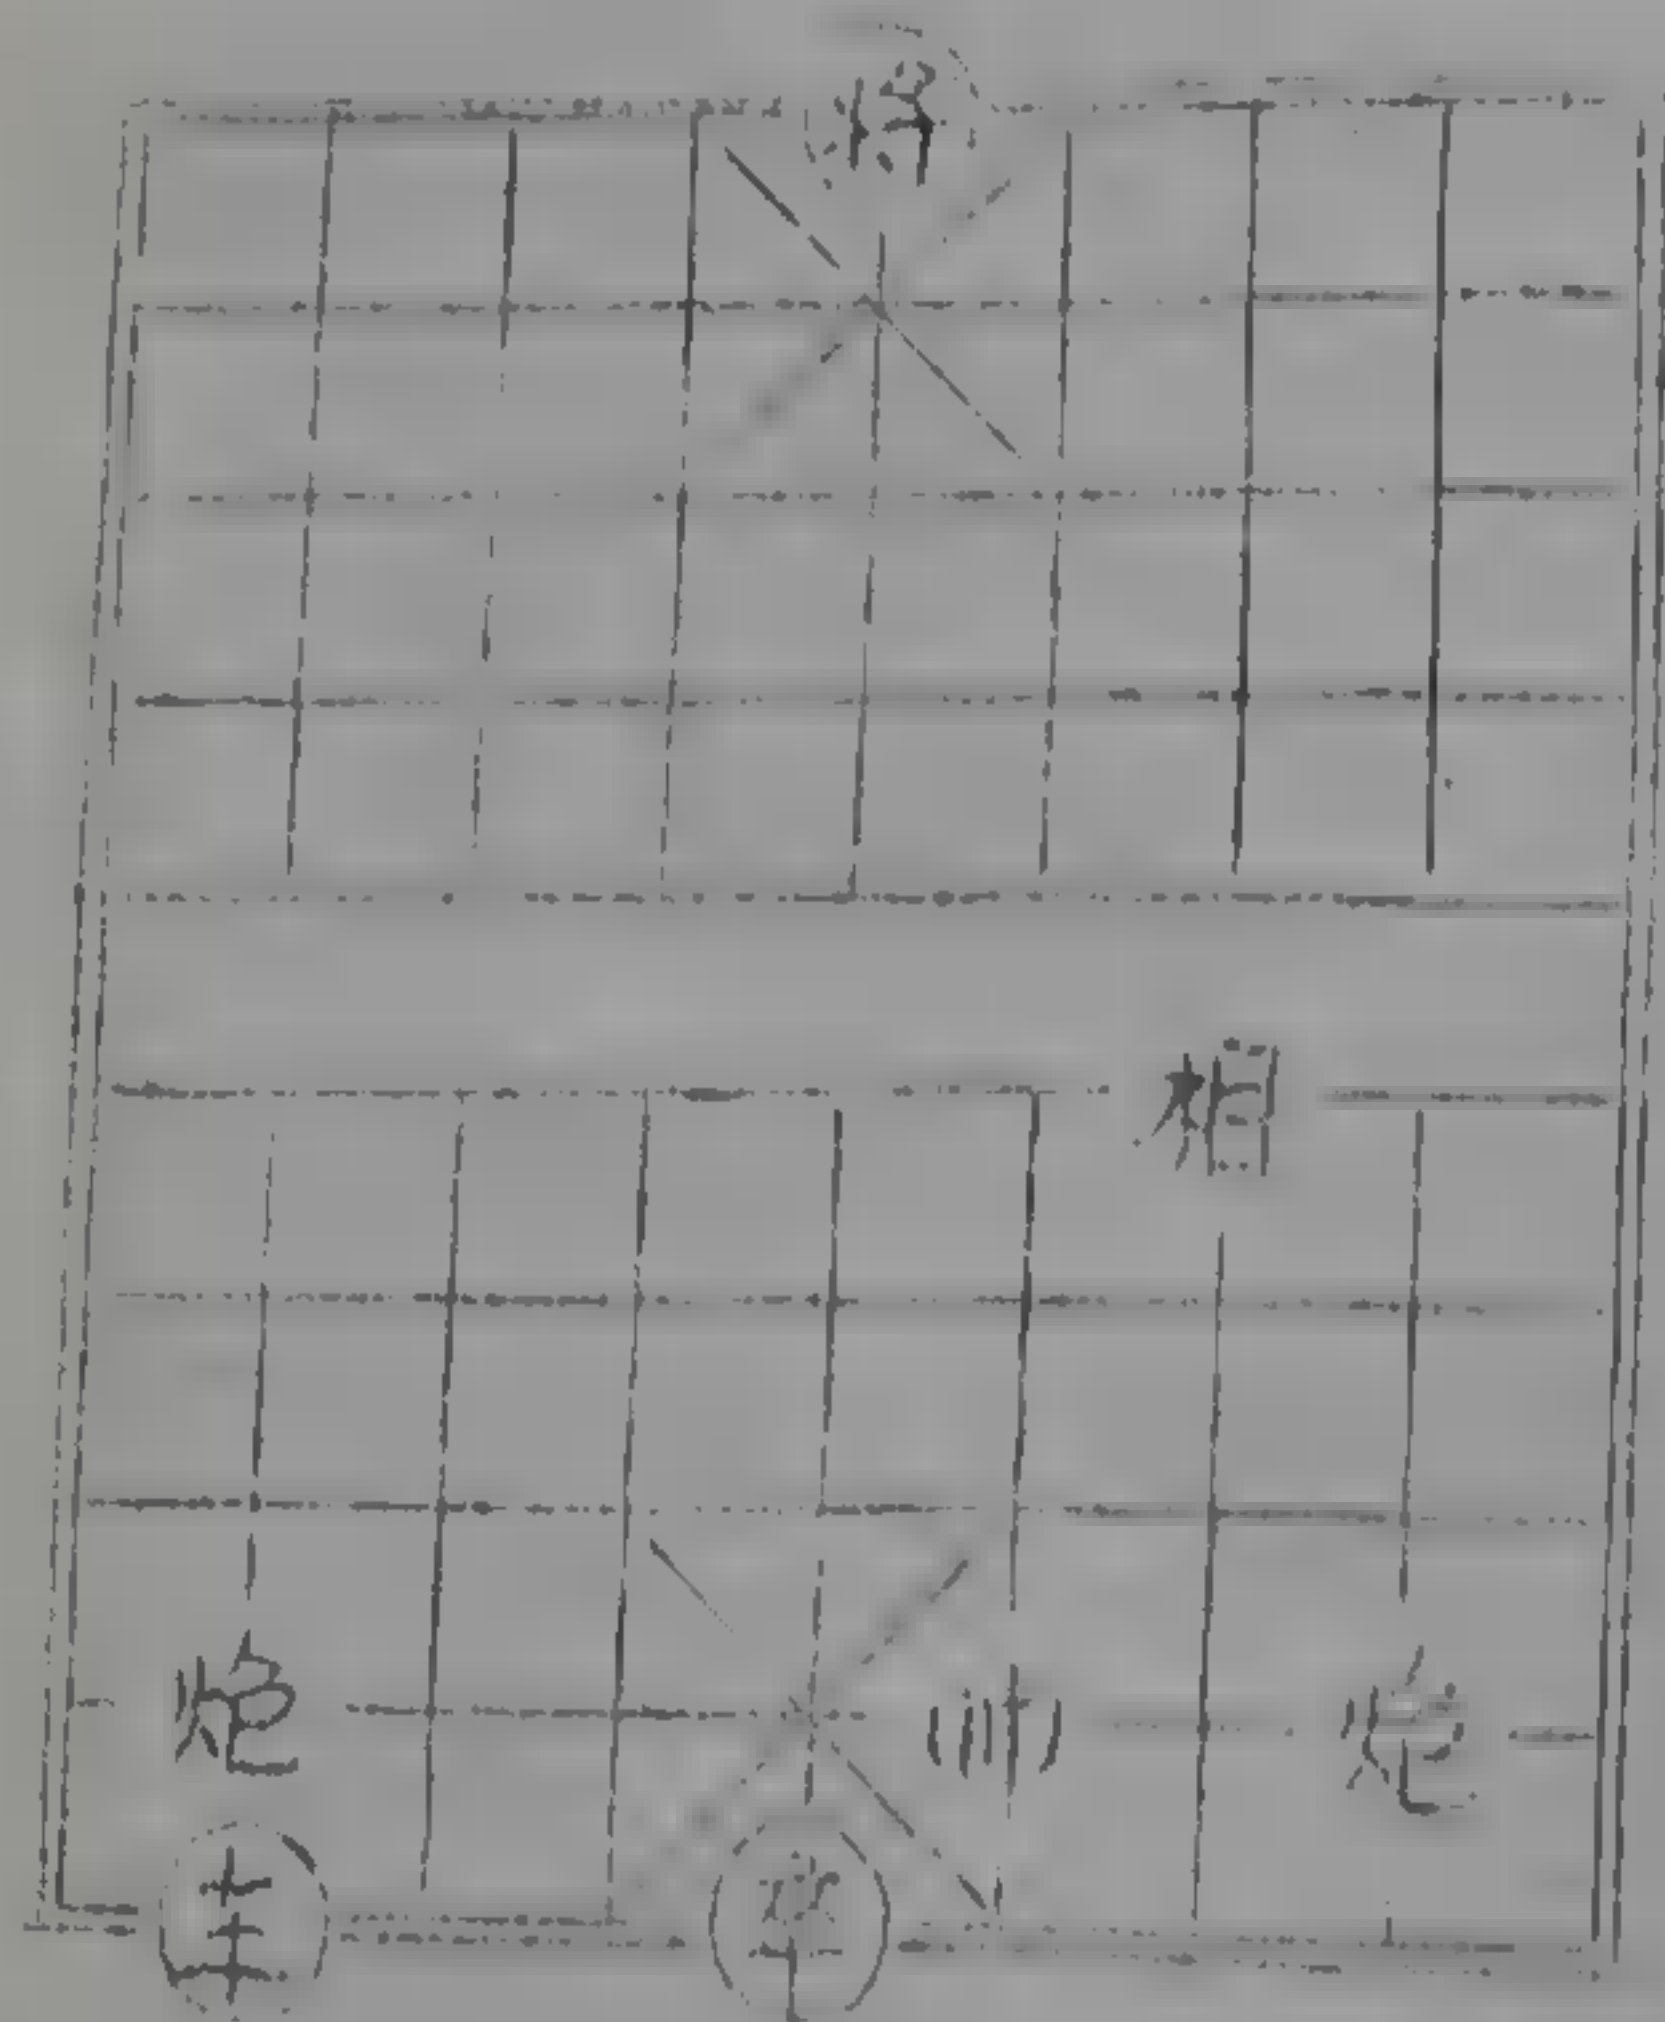 将
相
炮 帅 炮
车 卒